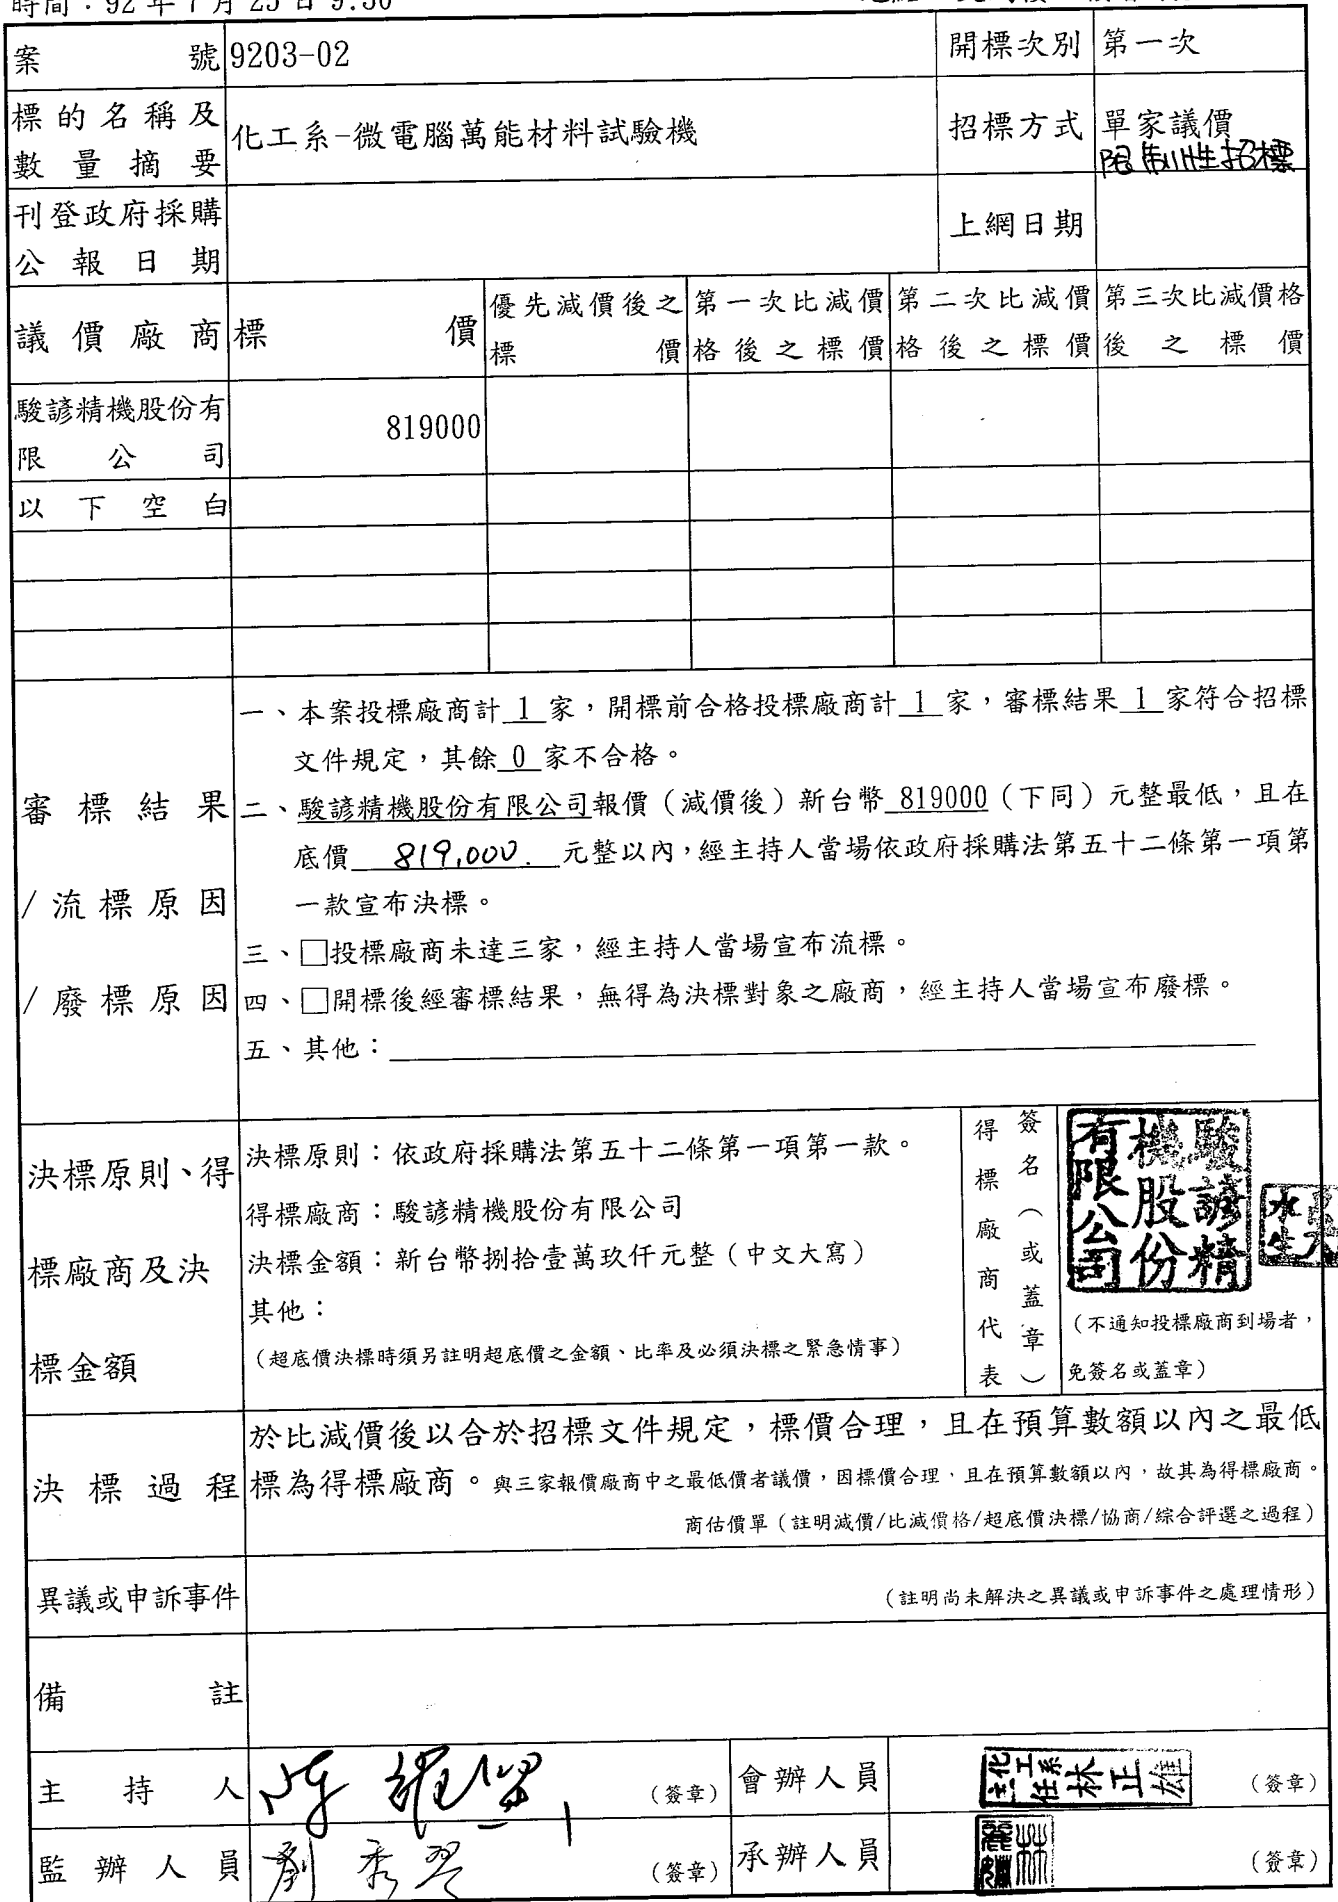 時間：92年7月25日9:30
案號 9203-02 開標次別 第一次
標的名稱及
數量摘要
化工系-微電腦萬能材料試驗機
招標方式
單家議價
限制性招標
刊登政府採購
公報日期
上網日期
議價廠商 標價
優先減價後之
標價
第一次比減價
格後之標價
第二次比減價
格後之標價
第三次比減價格
後之標價
駿諺精機股份有
限公司
819000
以下空白
審標結果
/流標原因
/廢標原因
一、本案投標廠商計 1 家，開標前合格投標廠商計 1 家，審標結果 1 家符合招標
文件規定，其餘 0 家不合格。
二、駿諺精機股份有限公司報價（減價後）新台幣 819000（下同）元整最低，且在
底價 819,000. 元整以內，經主持人當場依政府採購法第五十二條第一項第
一款宣布決標。
三、□投標廠商未達三家，經主持人當場宣布流標。
四、□開標後經審標結果，無得為決標對象之廠商，經主持人當場宣布廢標。
五、其他：
決標原則、得
標廠商及決
標金額
決標原則：依政府採購法第五十二條第一項第一款。
得標廠商：駿諺精機股份有限公司
決標金額：新台幣捌拾壹萬玖仟元整（中文大寫）
其他：
（超底價決標時須另註明超底價之金額、比率及必須決標之緊急情事）
得標廠商代表
簽名（或蓋章）
駿諺精
機股份
有限公司
水生
（不通知投標廠商到場者，
免簽名或蓋章）
決標過程
於比減價後以合於招標文件規定，標價合理，且在預算數額以內之最低
標為得標廠商。與三家報價廠商中之最低價者議價，因標價合理，且在預算數額以內，故其為得標廠商。
商估價單（註明減價/比減價格/超底價決標/協商/綜合評選之過程）
異議或申訴事件
（註明尚未解決之異議或申訴事件之處理情形）
備註
主持人
（簽章）
會辦人員
化工系
主任
林正雄
（簽章）
監辦人員
劉秀
（簽章）
承辦人員
林
（簽章）